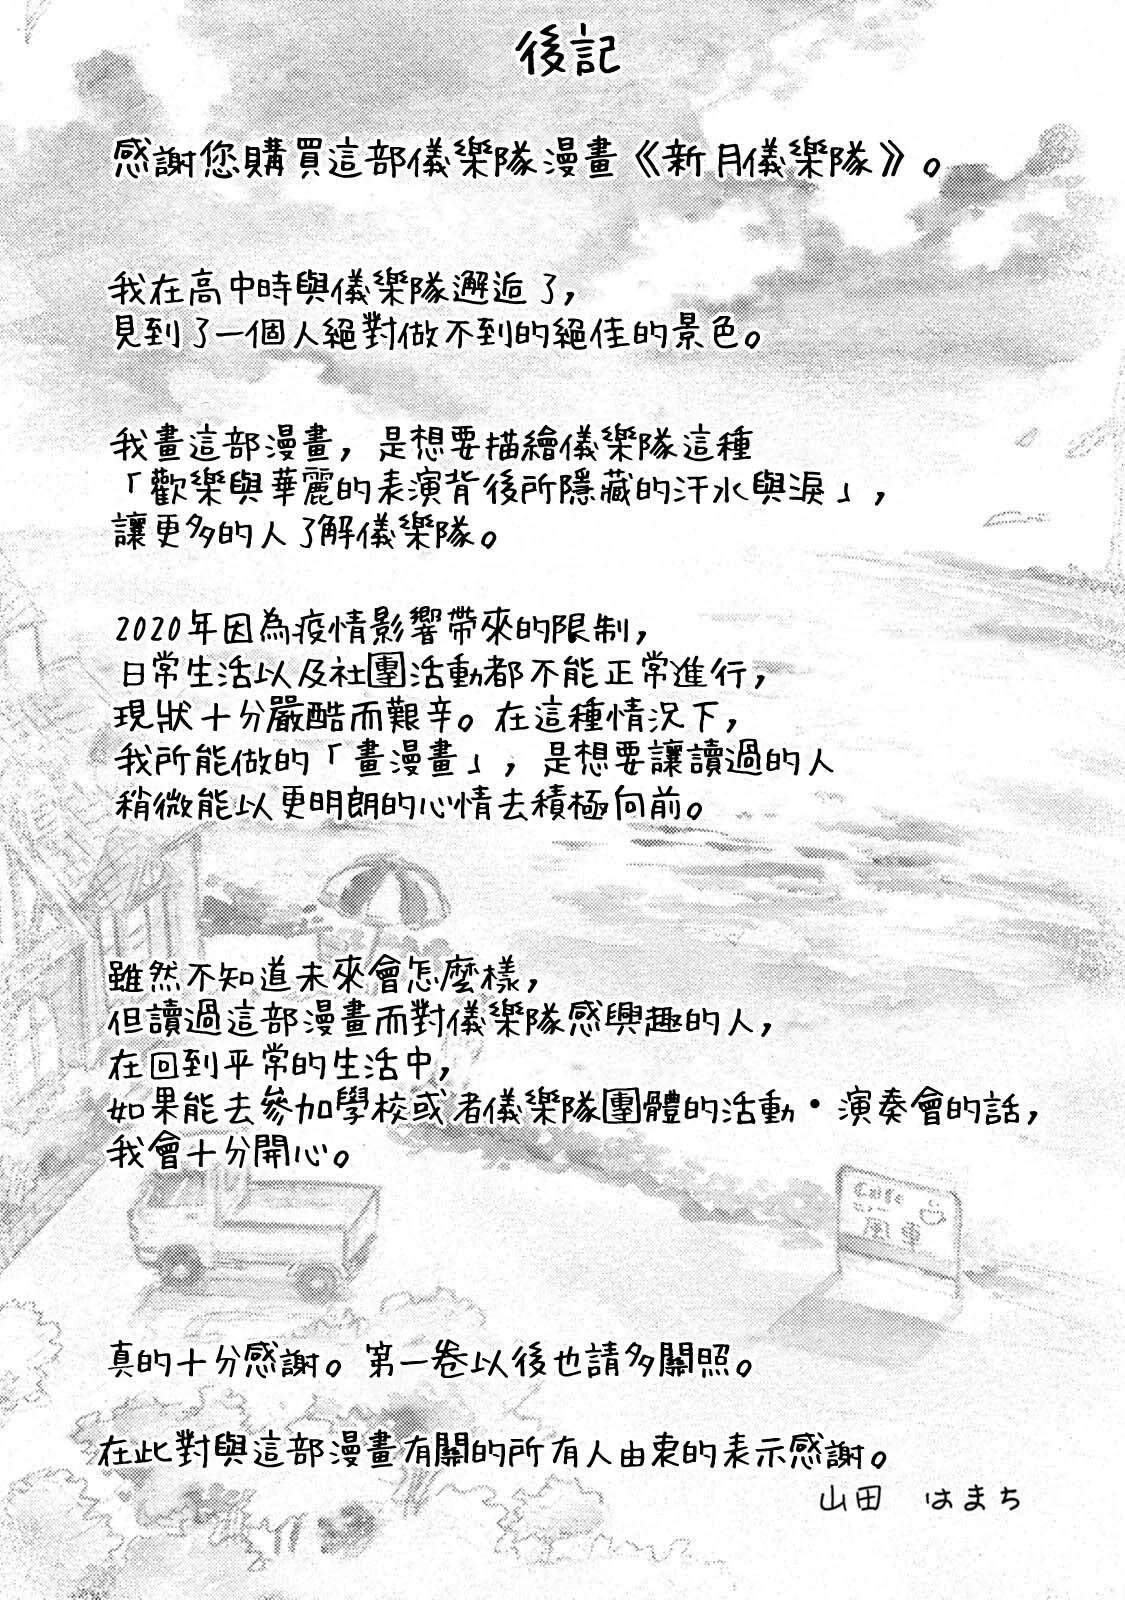 後記
感謝您購買這部儀樂隊漫畫《新月儀樂隊》。
我在高中時與儀樂隊邂逅了，
見到了一個人絕對做不到的絕佳的景色。
我畫這部漫畫，是想要描繪儀樂隊這種
「歡樂與華麗的表演背後所隱藏的汗水與淚」，
讓更多的人了解儀樂隊。
2020年因為疫情影響帶來的限制，
日常生活以及社團活動都不能正常進行，
現狀十分嚴酷而艱辛。在這種情況下，
我所能做的「畫漫畫」，是想要讓讀過的人
稍微能以更明朗的心情去積極向前。
雖然不知道未來會怎麼樣，
但讀過這部漫畫而對儀樂隊感興趣的人，
在回到平常的生活中，
如果能去參加學校或者儀樂隊團體的活動・演奏會的話，
我會十分開心。
Cafe
風車
真的十分感謝。第一卷以後也請多關照。
在此對與這部漫畫有關的所有人由衷的表示感謝。
山田　はまち